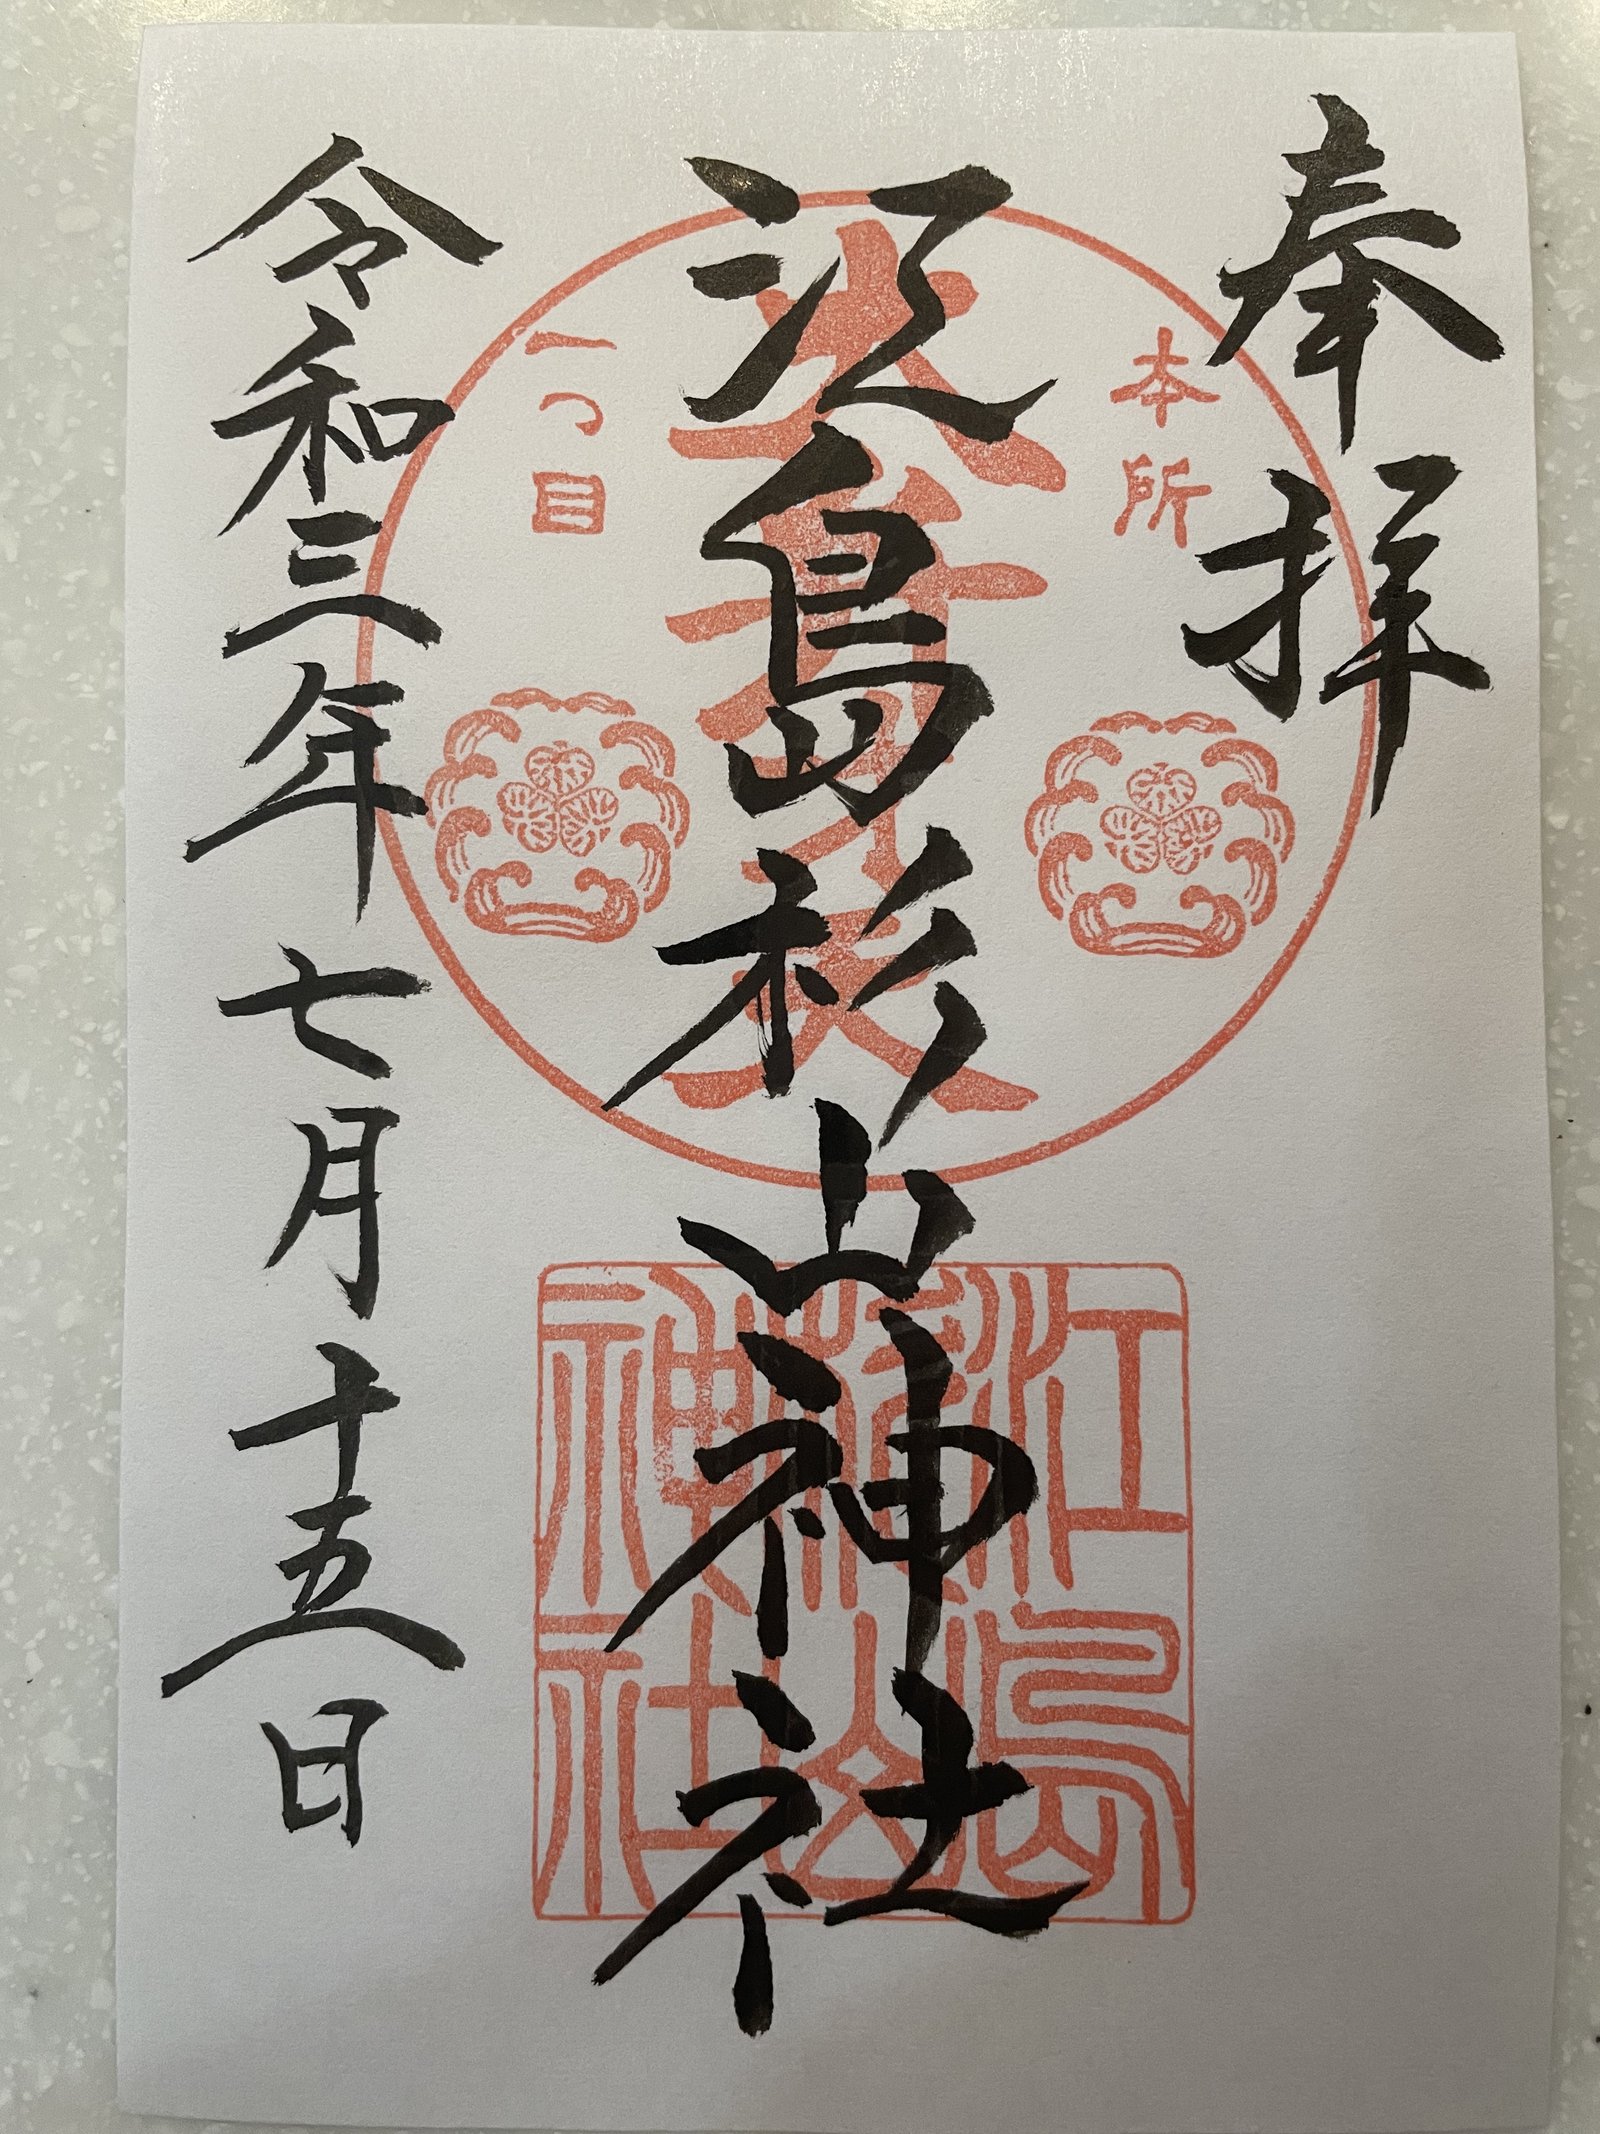 奉拝
本所
一つ目
江島杉山神社
江島
杉山
神社
令和三年七月十五日